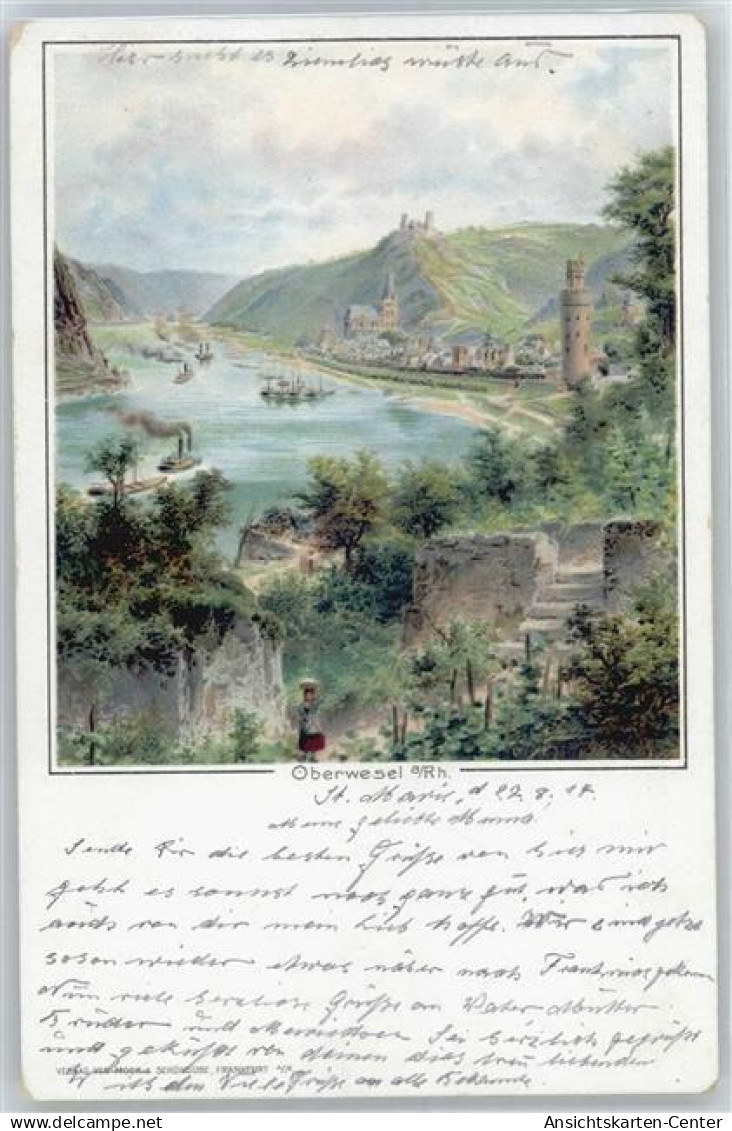 Hier sieht es ziemlich wüste aus.
Oberwesel a/Rh.
St. Marie, d 27. 8. 14.
Meine geliebte
Sende Dir die besten Grüße von hier mir
geht es sonst noch ganz gut, was ich
auch von dir mein Lieb hoffe. Wir sind jetzt
schon wieder etwas näher nach
Nun viele herzliche Grüße an Vater Mutter
Brüder und Sei herzlich gegrüßt
und geküßt von deinem dich treu liebenden
Viele Grüße an alle Bekannte.
FRANKFURT a/M.
Ansichtskarten-Center